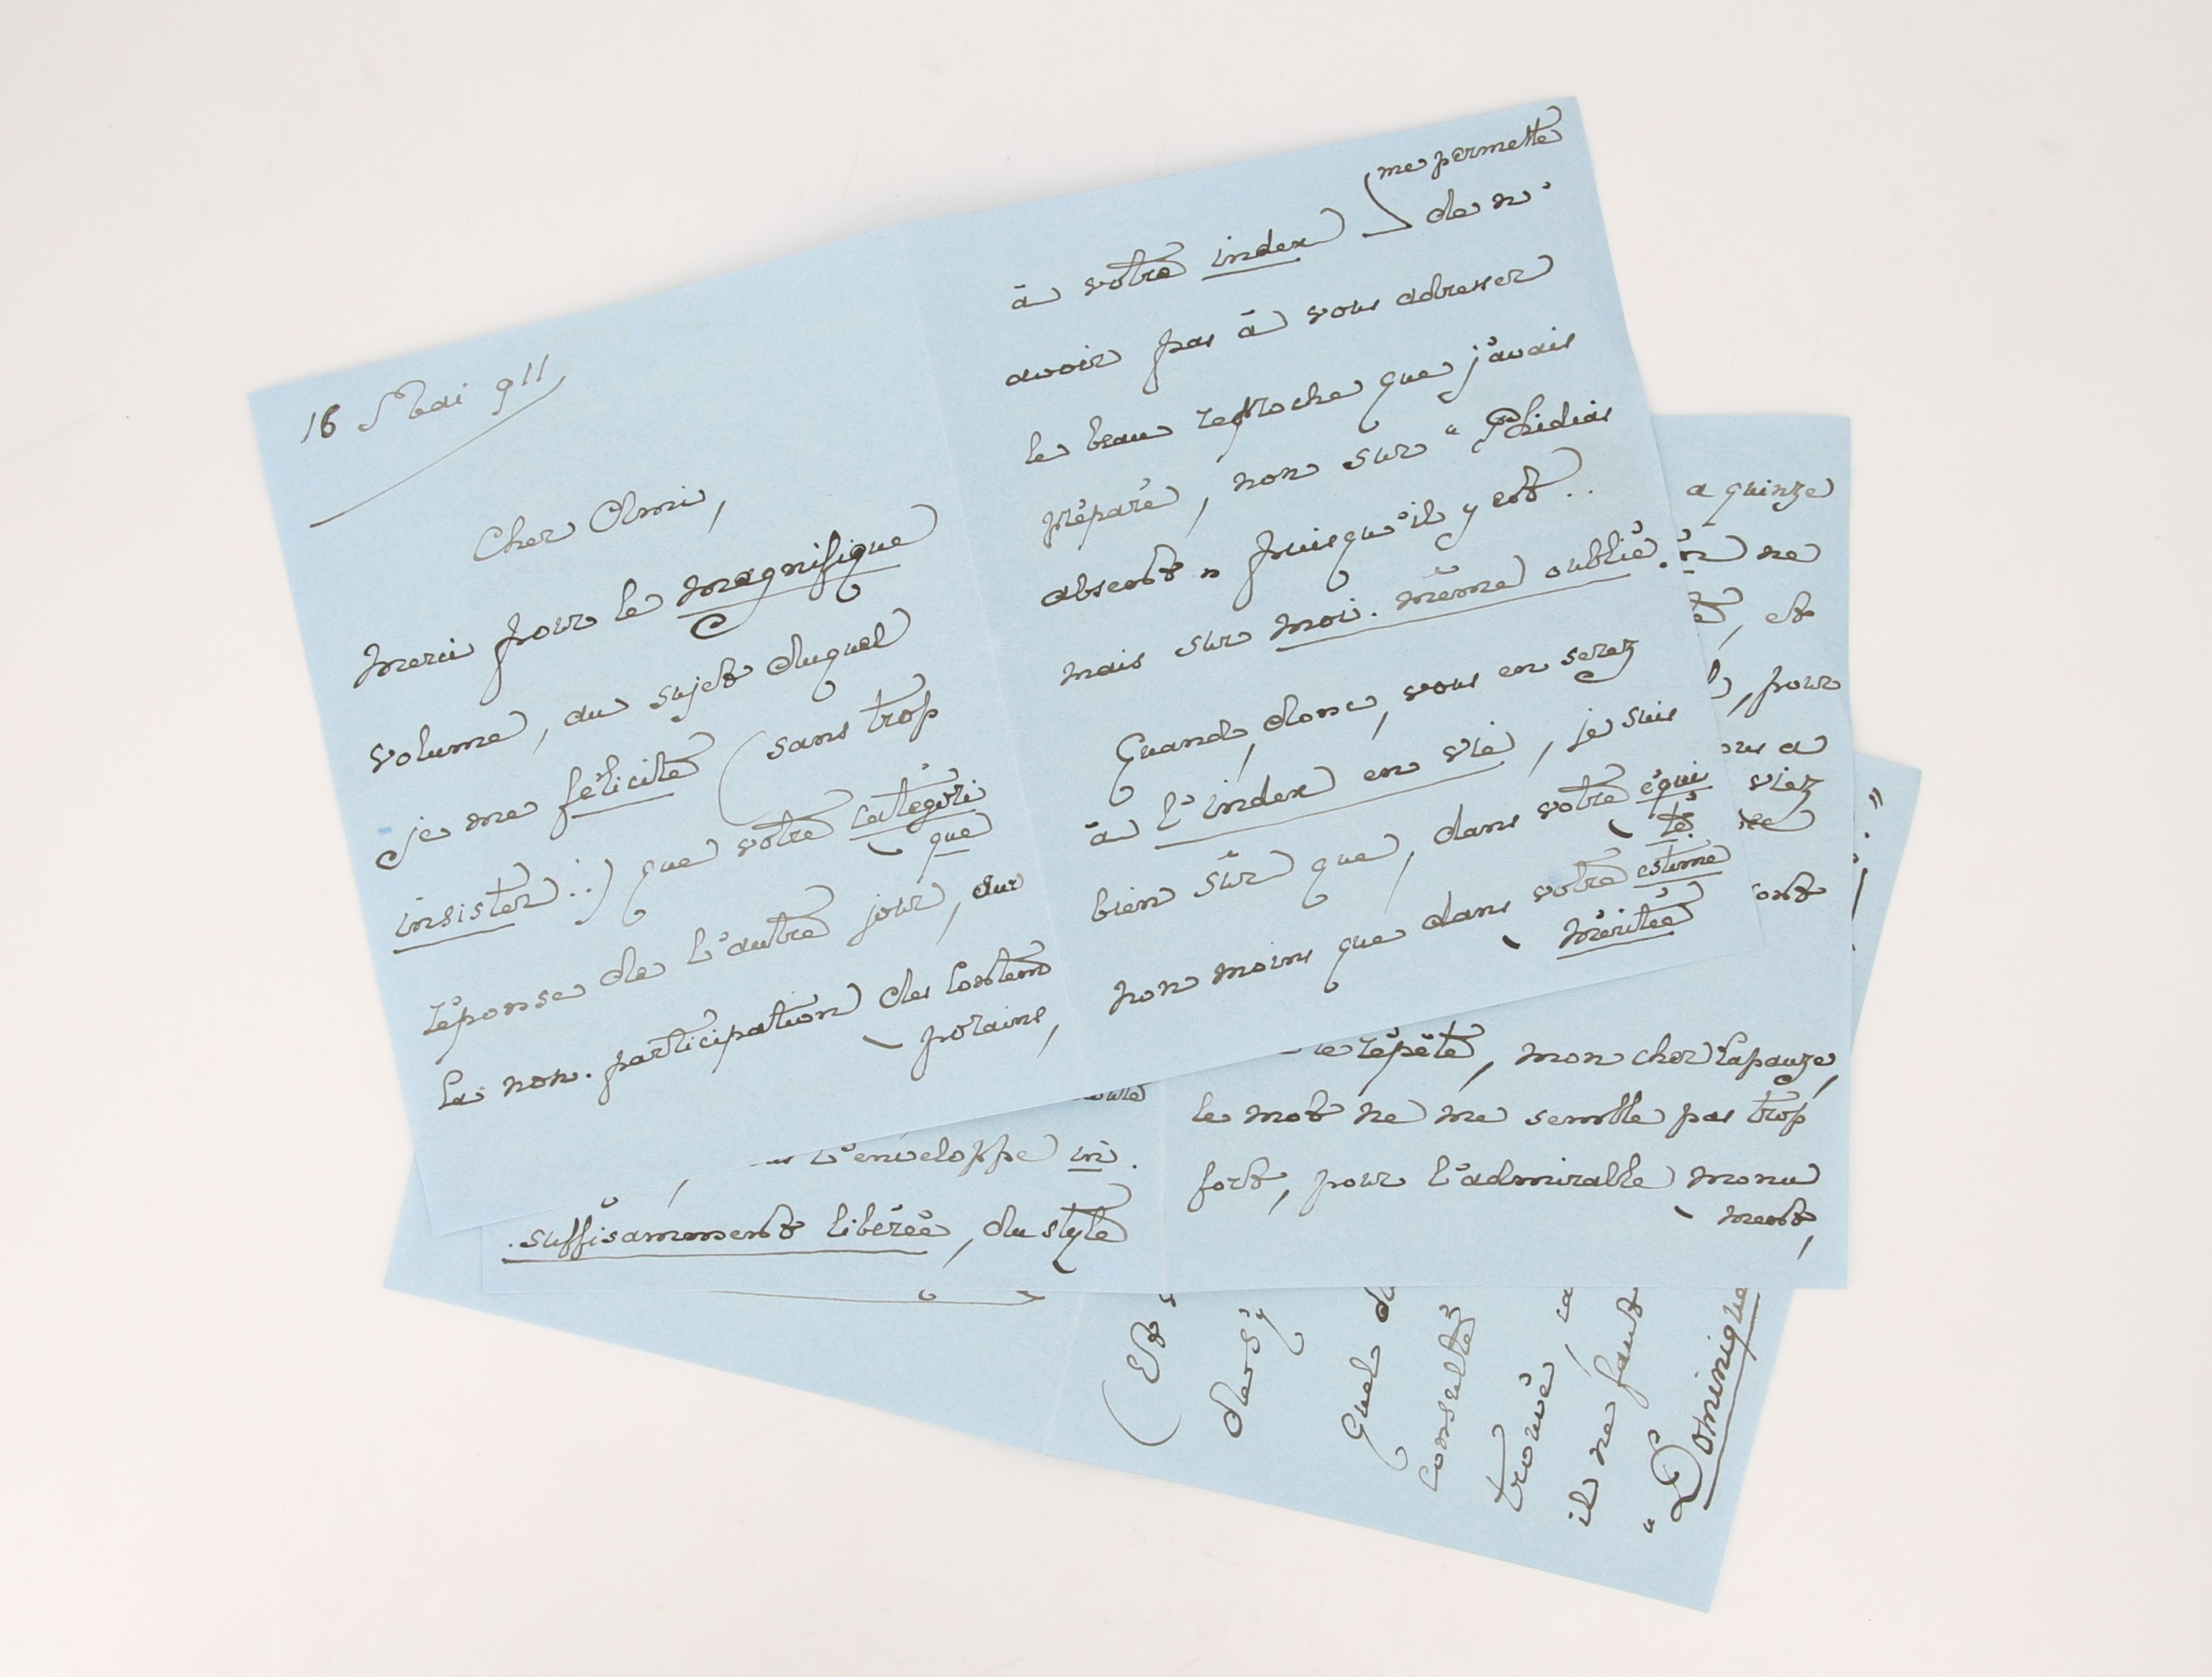 16 Mai 911
Cher Ami,
Merci pour le magnifique
volume, au sujet duquel
je me félicite (sans trop
insister..) que votre catégori
- que
réponse de l'autre jour, sur
la non-participation des Contem
- porains,
me permette
à votre index de n'
avoir pas à vous adresser
le beau reproche que j'avais
préparé, non sur "Phidias
absent" puisqu'il y est..
mais sur moi-même oublié.
Quand, donc, vous en serez
à l'index en vie, je suis
bien sûr que, dans votre équi
- té.
non moins que dans votre estime
- méritée
a quinze
ne
, et
, pour
a
viez
ont
l'enveloppe in-
-suffisamment libérée, du style
le répète, mon cher Lapauze,
le mot ne me semble pas trop
fort, pour l'admirable monu
- ment,
(Et
Quel
consulté
trouvé,
il ne faut
"Dominique
"